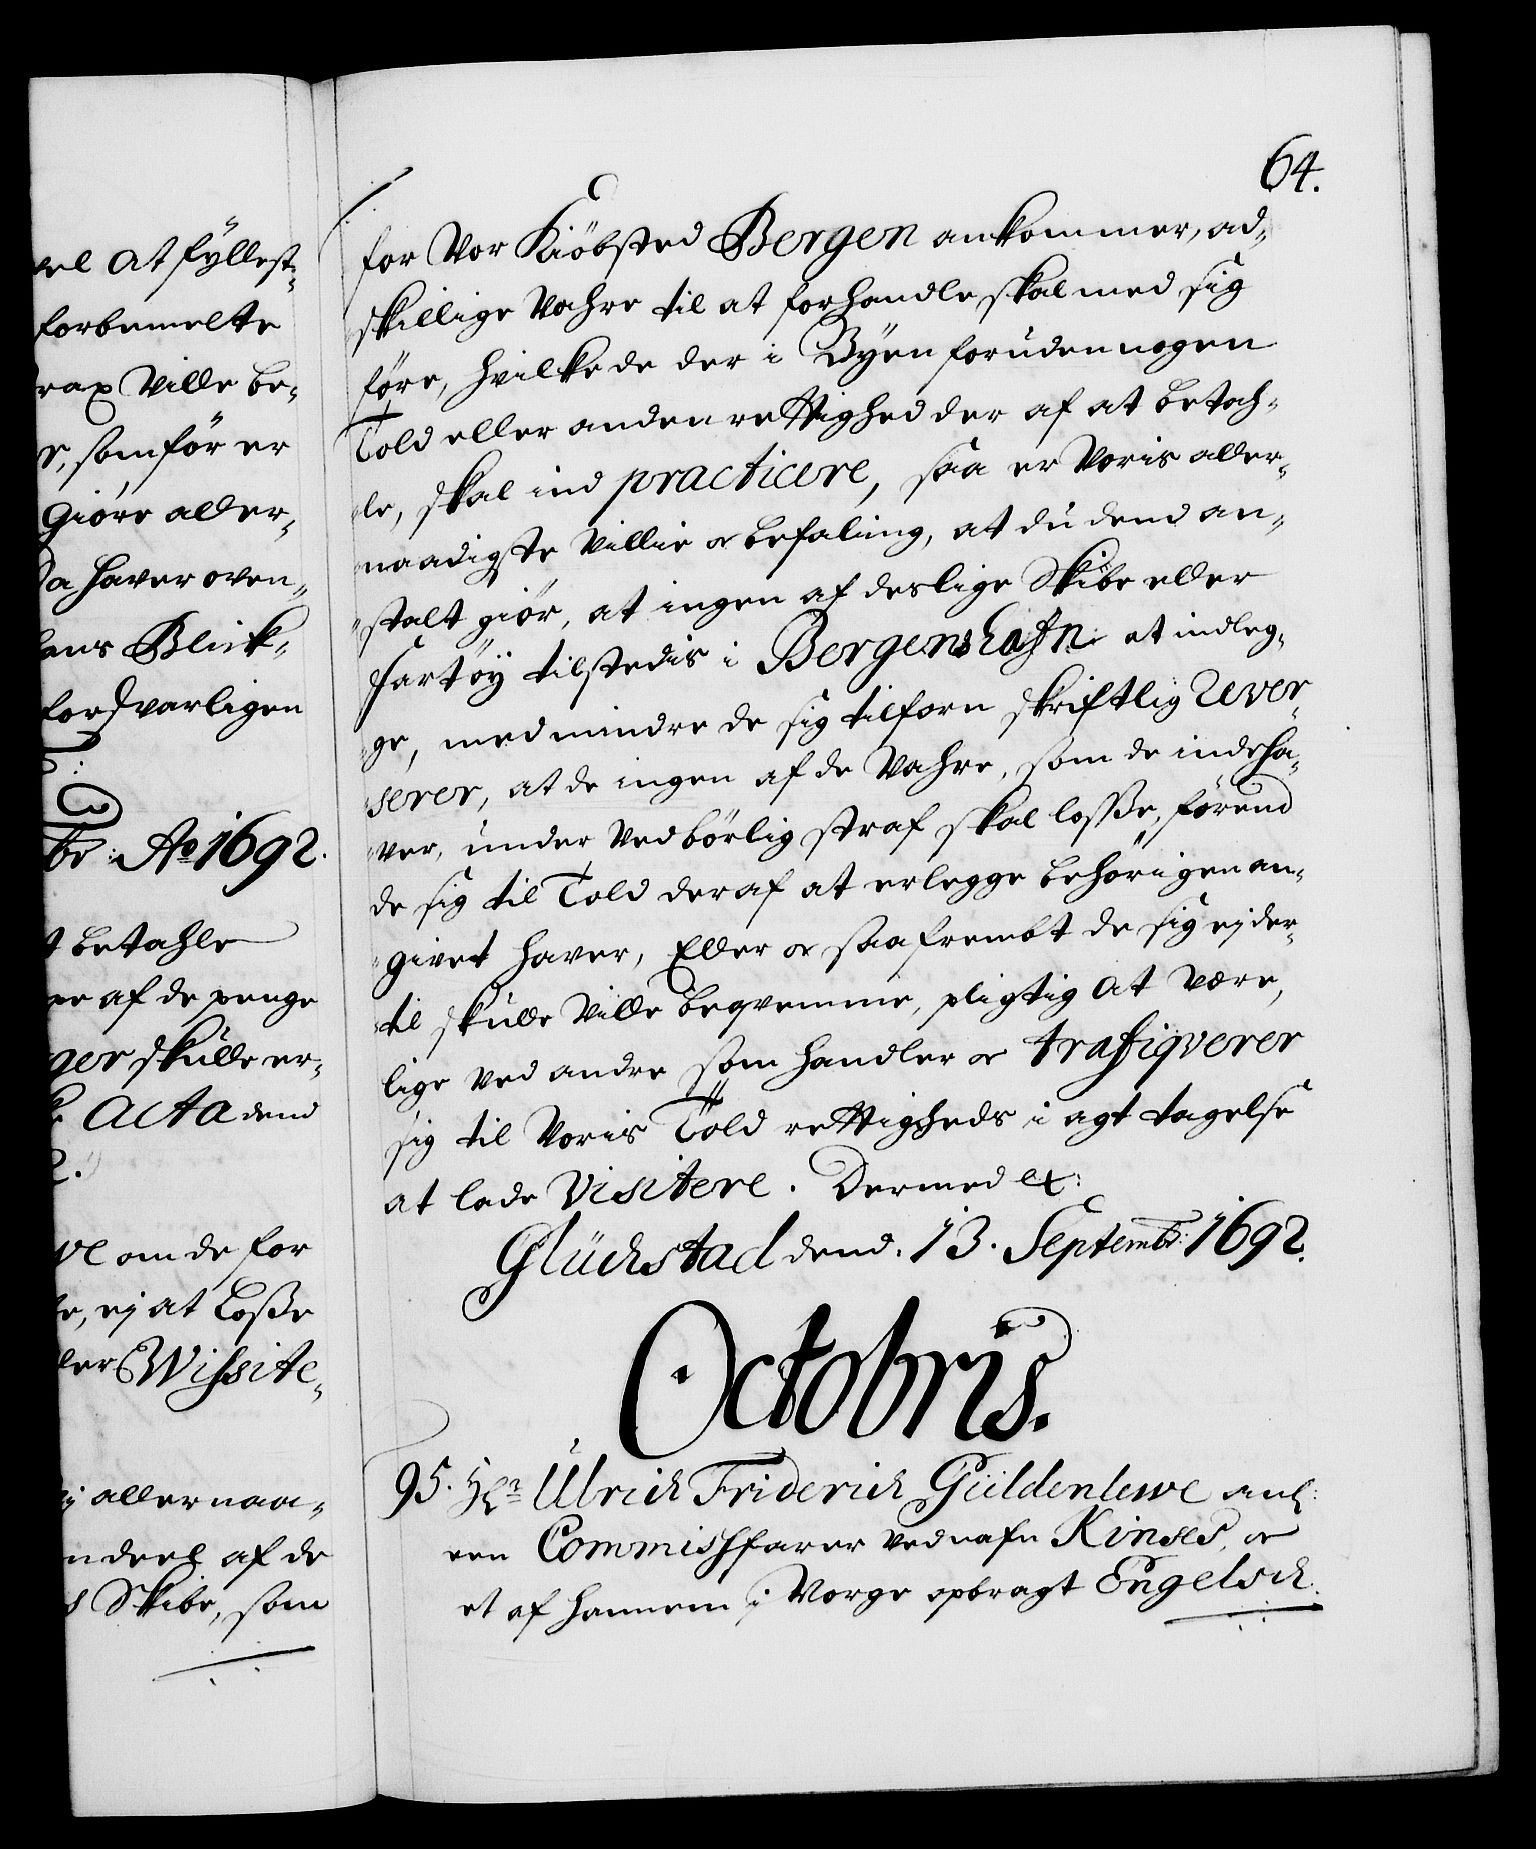 vel at fyllest-
forbemelte
rax Ville be-
r, som før er
Giöre aller-
Da haver oven-
ens Blick-
forsvarligen
br: Ao 1692.
t betahle
pe af de penge
ger skulle er-
Acta dend
2.
ve om de for
e, ej at Losse
ler Wissite-
j allernaa-
ndeel af de
s Skibe, som
64.
for Vor Kiöbsted Bergen ankommer, ad-
skillige Vahre til at forhandle skal med sig
føre, hvilke de der i Byen foruden nogen
Told eller anden rettighed der af at betah-
le, skal ind practicere, saa er Voris aller-
naadigste Villie oc befaling, at du dend an-
stalt giör, at ingen af deslige Skibe eller
Fartöy tilstedis i Bergens Hafn at indleg-
ge, med mindre de sig tilforn skriftlig Rever-
serer, at de ingen af de Vahre, som de indeha-
ver, under Vedbörlig straf skal losse, förend
de sig til Told deraf at erlegge behörigen an-
givet haver, Eller oc saafrembt de sig ej der-
til skulle Ville beqvemme, pligtig at Være,
lige ved andre som handler oc trafiqverer
sig til Voris Told rettigheds i agt tagelse
at lade Visitere. Dermed etc:
Glückstad dend. 13. Septembr: 1692.
Octobris.
95. Hr. Ulrich Friderich Güldenlewe anl:
een Commissfarer ved nafn Kinses, oc
et af hannem i Norge opbragt Engelsch